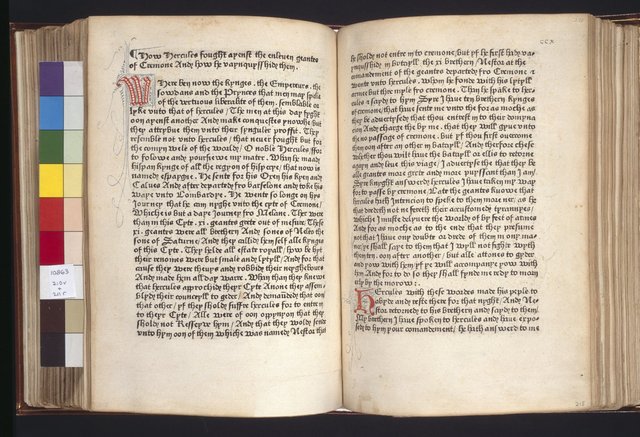 How Hercules fought ayenst the enleuen geantes
of Cremone And how he vaynquysshid hem.
Where ben now the kynges. the Emperours. the
sowdans and the Prynces that men may speke
of the vertuous liberalite of them. semblable or
lyke vnto that of hercules / The men at this day fyght
oon ayenst another And make conquestes ynowhe but
they attrybue them vnto their synguler proffit. They
resemble not vnto hercules / that neuer fought but for
the comyn wele of the world / O noble Hercules ffor
to folowe and poursiewe my mater. Whan he made
hispan kynge of all the regyon of hisperye / that now is
named espaygne. He sente for his Oxen his kyen and
Calues And after departed fro barselone and toke his
waye vnto Lombardye. He wente so longe on his
Journey that he cam nyghe vnto the cyte of Cremone /
Whiche is but a daye Journey fro Millane. Ther were
than in this Cyte .xi. geantes grete out of mesure. Thes
xi. geantes were all brethern And sones of Neleo the
sone of Saturne / And they callid hemself alle kynges
of this Cyte. They helde all estate royall / how be hyt
their renomee were but smale and lytyll / And for that
cause they were theuys and robbide their neyghebours
And made hem all day warre. Whan than they knewe
that hercules approched theyr Cyte Anone they assem
blyde their councyll to geder / And demanded that oon
that other / yf they sholde suffre hercules for to entre in
to theyr Cyte / Alle were of oon oppynyon that they
sholde not Resseyve hym / And that they wolde sende
vnto hym oon of them whiche was named Nestor that
CCX
he sholde not entre in to cremone / but yf he first had vay
nquysshid in batayll the .xi brethern / Nestor at the
comandement of the geantes departed fro Cremone &
wente vnto hercules. Whom he fonde with his lytyll
armee but thre myle fro cremone. Than he spake to her
cules & sayde to hym Syre I haue ten brethern kynges
of cremone / that haue sente me vnto the for as moche as
they be aduertysed that thou entrest in to their domyna
cion And charge the by me. that they will gyue vnto
the no passage of cremone. but yf thou first ouercome
them oon after an other in batayll / And therfore chese
whether thou wilt haue the batayll or ellis to retorne
agayn and leue this viage / I aduertyse the that they be
alle geantes more grete and more puyssant than J am /
Syre knyght answerd hercules J haue taken my way
for to passe by cremone. Late the geantes knowe that
hercules hath Intencion to speke to them more ner / as he
that dredeth not ne fereth their accustomed tyrannyes /
whiche J muste depure the world of by fet of armes
And for as moche as to the ende that they presume
not that J haue ony doubte or drede of them in ony ma
ner / ye shall saye to them that J wyll not fyghte wyth
them ten. oon after another / but alle attones to geder
and yow with hem yf ye will accompanye yow with
hem And for to do so they shall fynde me redy to morn
erly by the morow:
Hercules with these wordes made his peple to
abyde and reste there for that nyght / And Ne
stor retorned to his brethern and sayde to them /
My brethern J haue spoken to hercules and haue expo
sed to hym your comandement / he hath answerd to me
10863
210v
+
211r